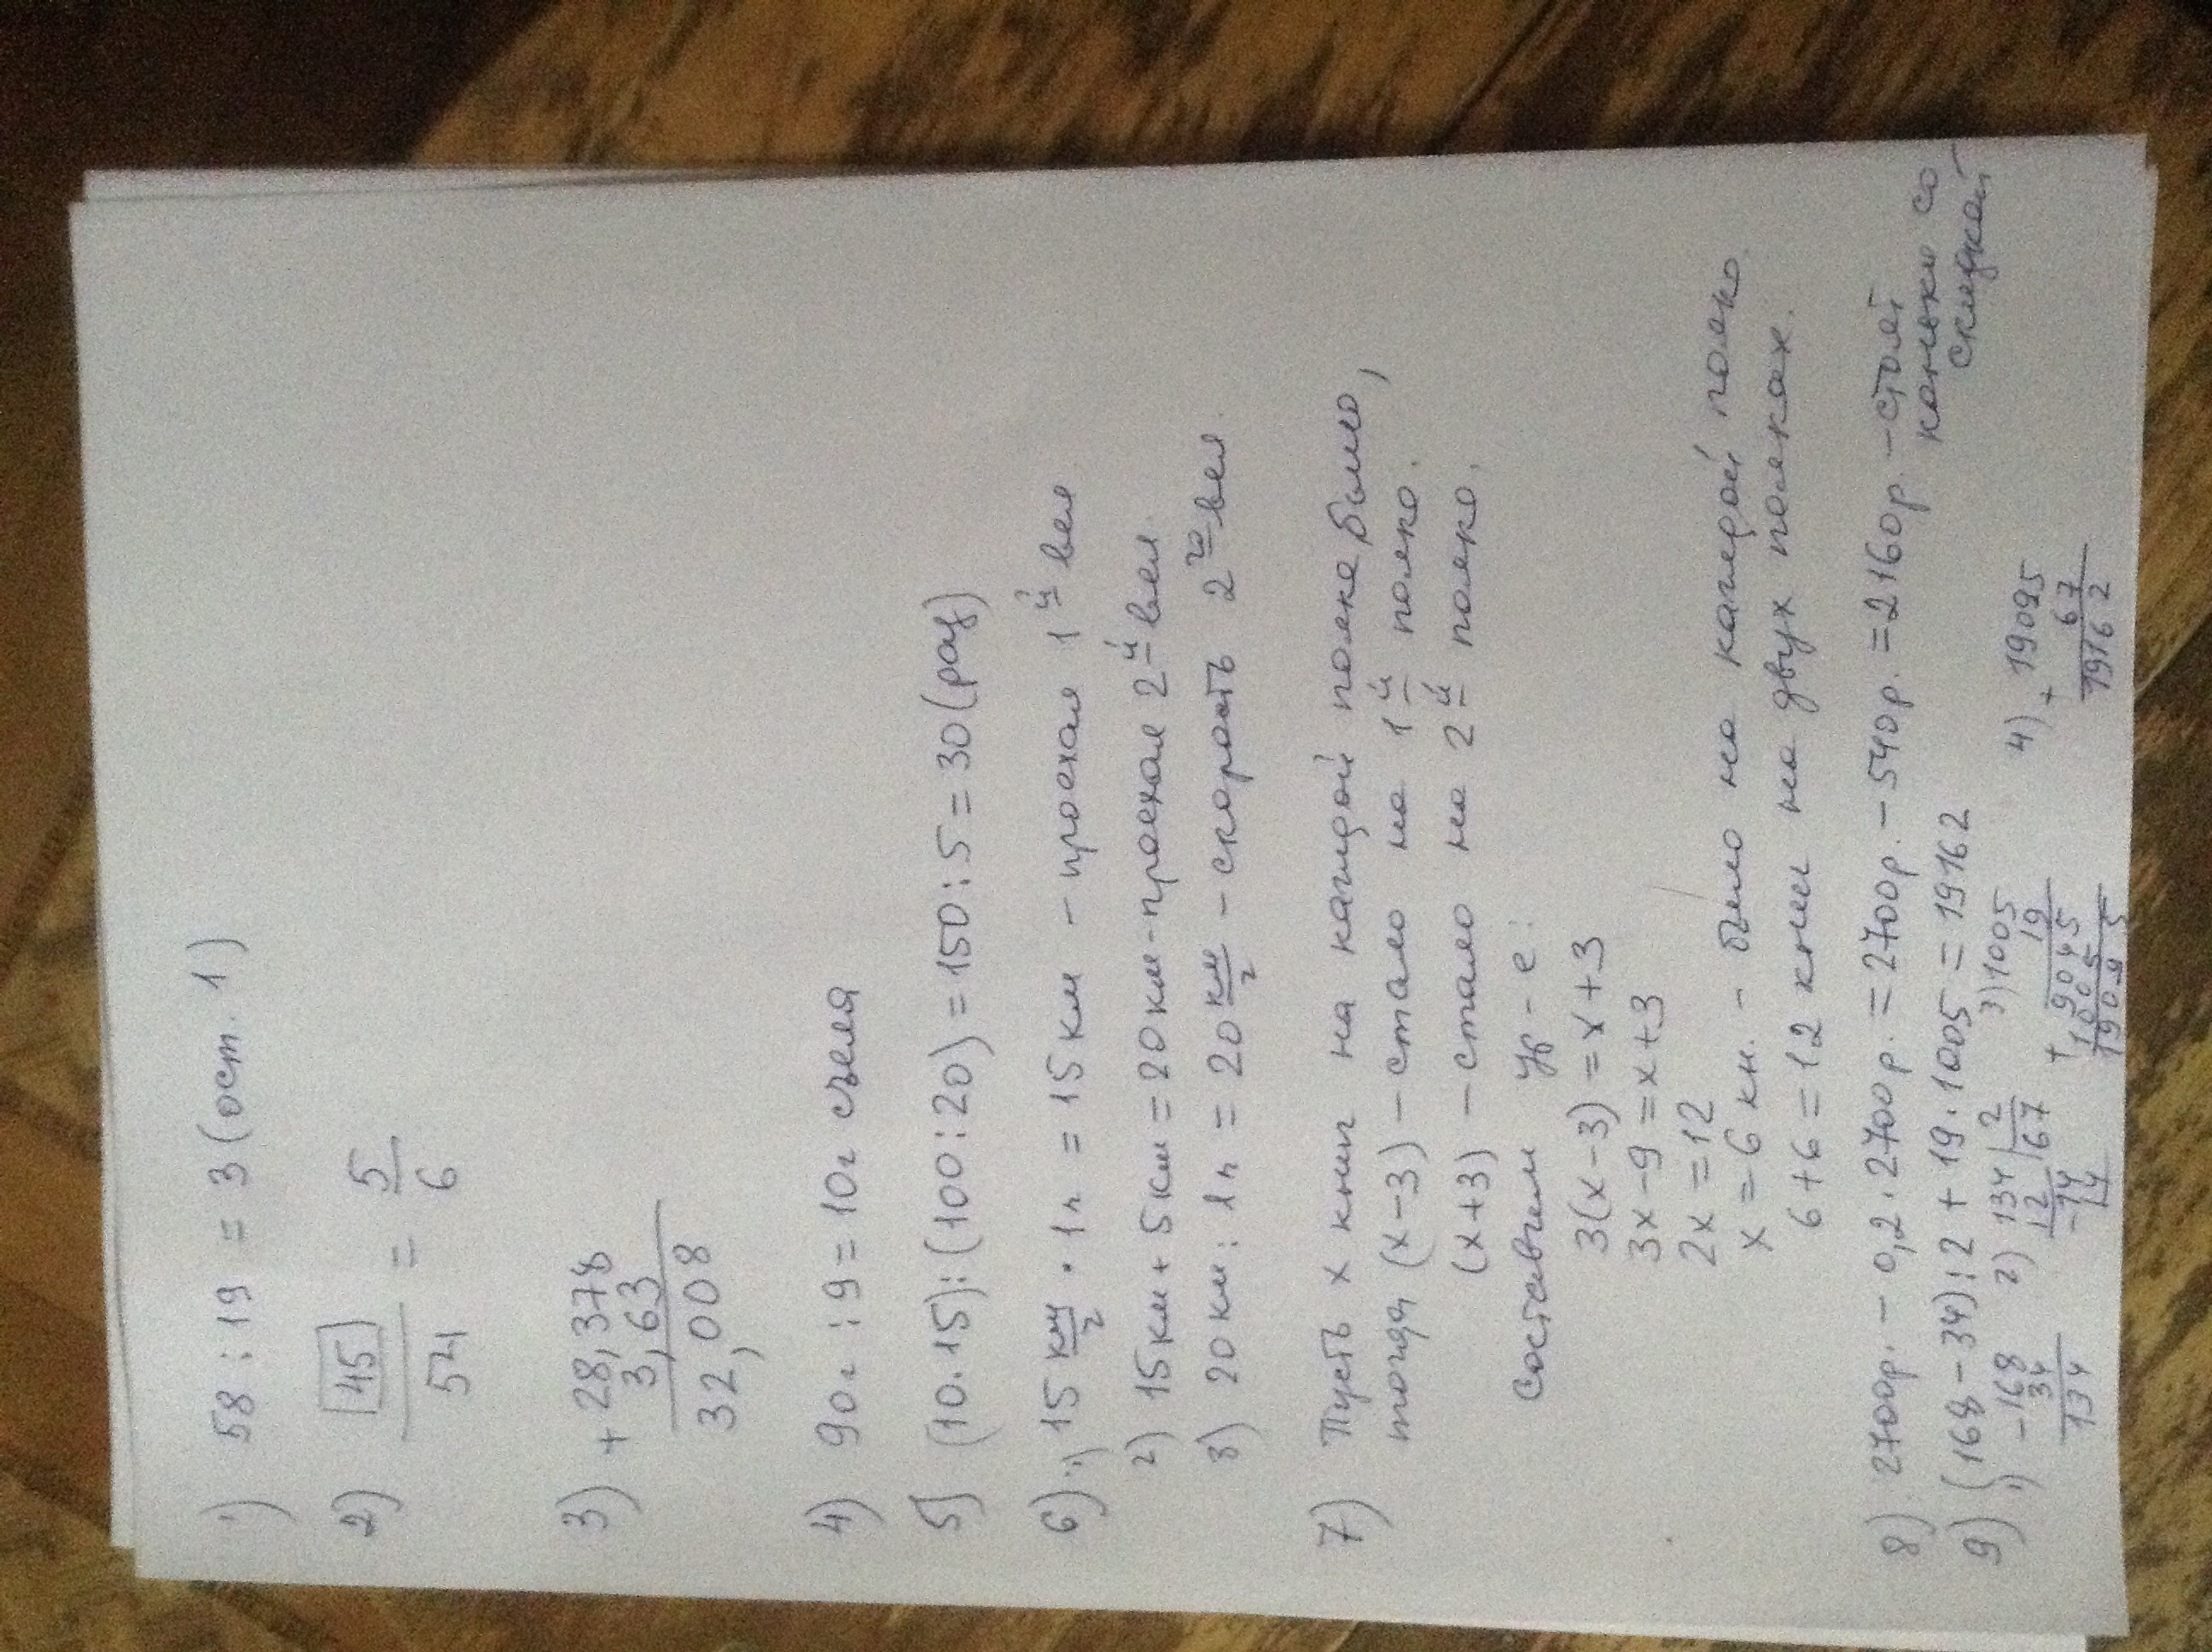 1) 58 : 19 = 3 (ост. 1)
2) 45/54 = 5/6
3) + 28,378
3,63
32,008
4) 90г : 9 = 10г съела
5) (10·15):(100:20) = 150:5 = 30 (раз)
6) 1) 15 км/г · 1г = 15 км – проехал 1й вел
2) 15 км + 5 км = 20 км – проехал 2й вел.
3) 20 км : 1г = 20 км/г – скорость 2го вел.
7) Пусть x книг на каждой полке было,
тогда (x–3) – стало на 1й полке.
(x+3) – стало на 2й полке.
Составим ур-е:
3(x–3) = x+3
3x–9 = x+3
2x = 12
x = 6 кн. – было на каждой полке
6+6 = 12 книг на двух полках.
8) 2700р. – 0,2·2700р. = 2700р. – 540р. = 2160р. – стоят
коньки со
скидкой
9) (168–34):2 + 19·1005 = 19162
1) – 168
34
134
2) 134 | 2
12 67
–14
14
3) 1005
19
+ 9045
1005
19095
4) + 19095
67
19162